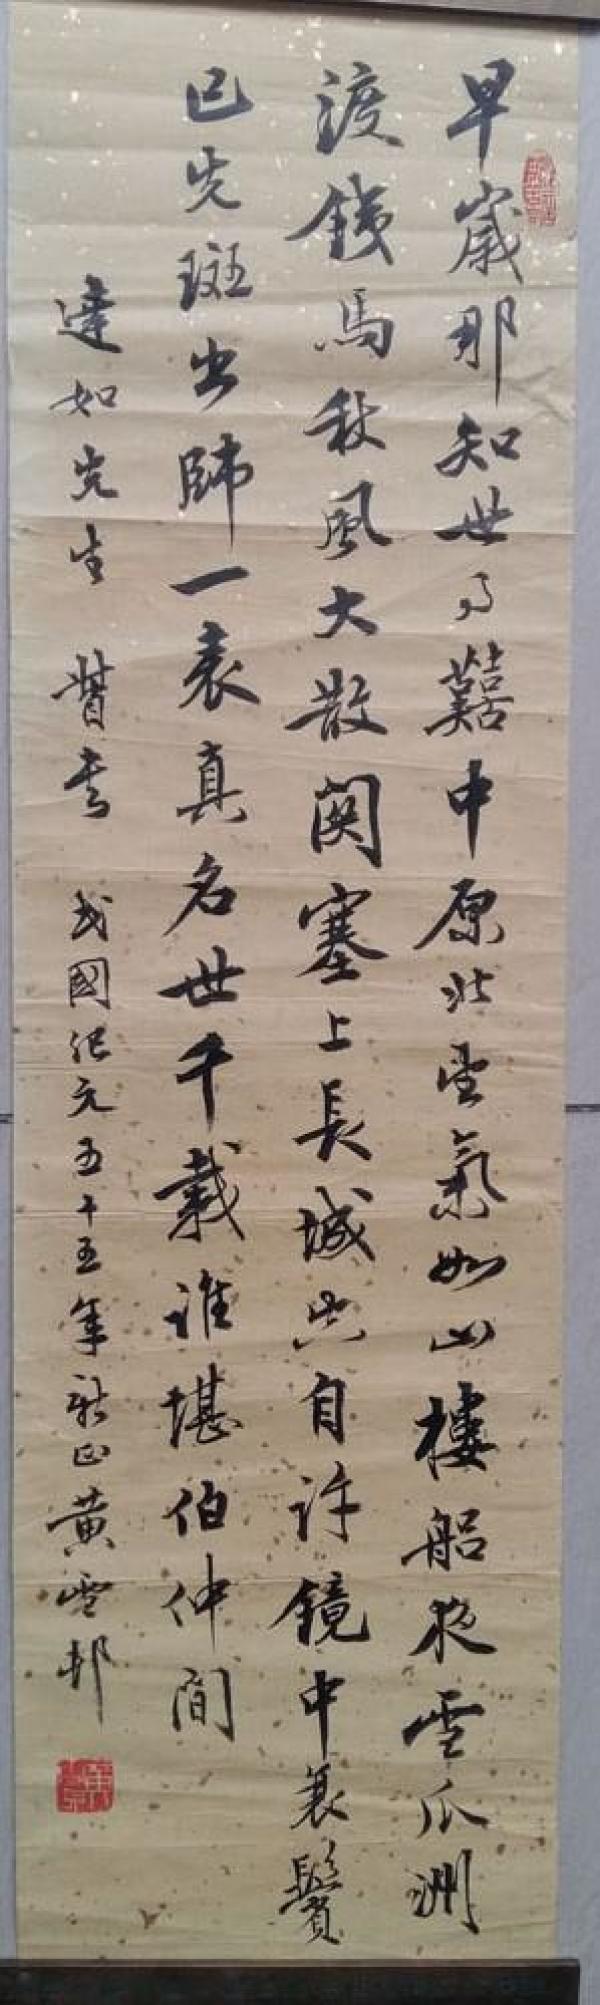 早歲那知世事艱中原北望氣如山樓船夜雪瓜洲
渡鐵馬秋風大散関塞上長城空自許鏡中衰鬢
已先斑出師一表真名世千載誰堪伯仲間
達如先生 督書 民國紀元五十五年新正黃雪邨